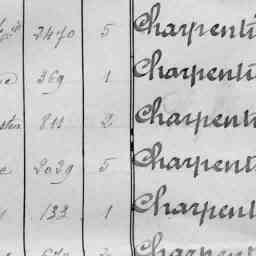 2470 5 Charpenti
369 1 Charpenti
811 2 Charpenti
2029 5 Charpenti
133 1 Charpent
Charpent